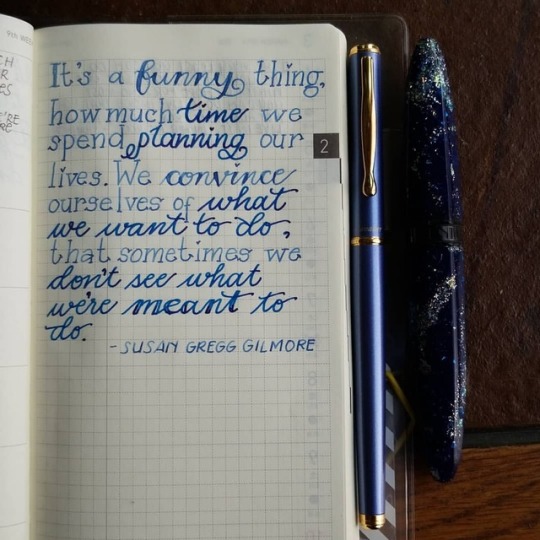 It's a funny thing,
how much time we
spend planning our
lives. We convince
ourselves of what
we want to do,
that sometimes we
don't see what
we're meant to
do.
- SUSAN GREGG GILMORE
2